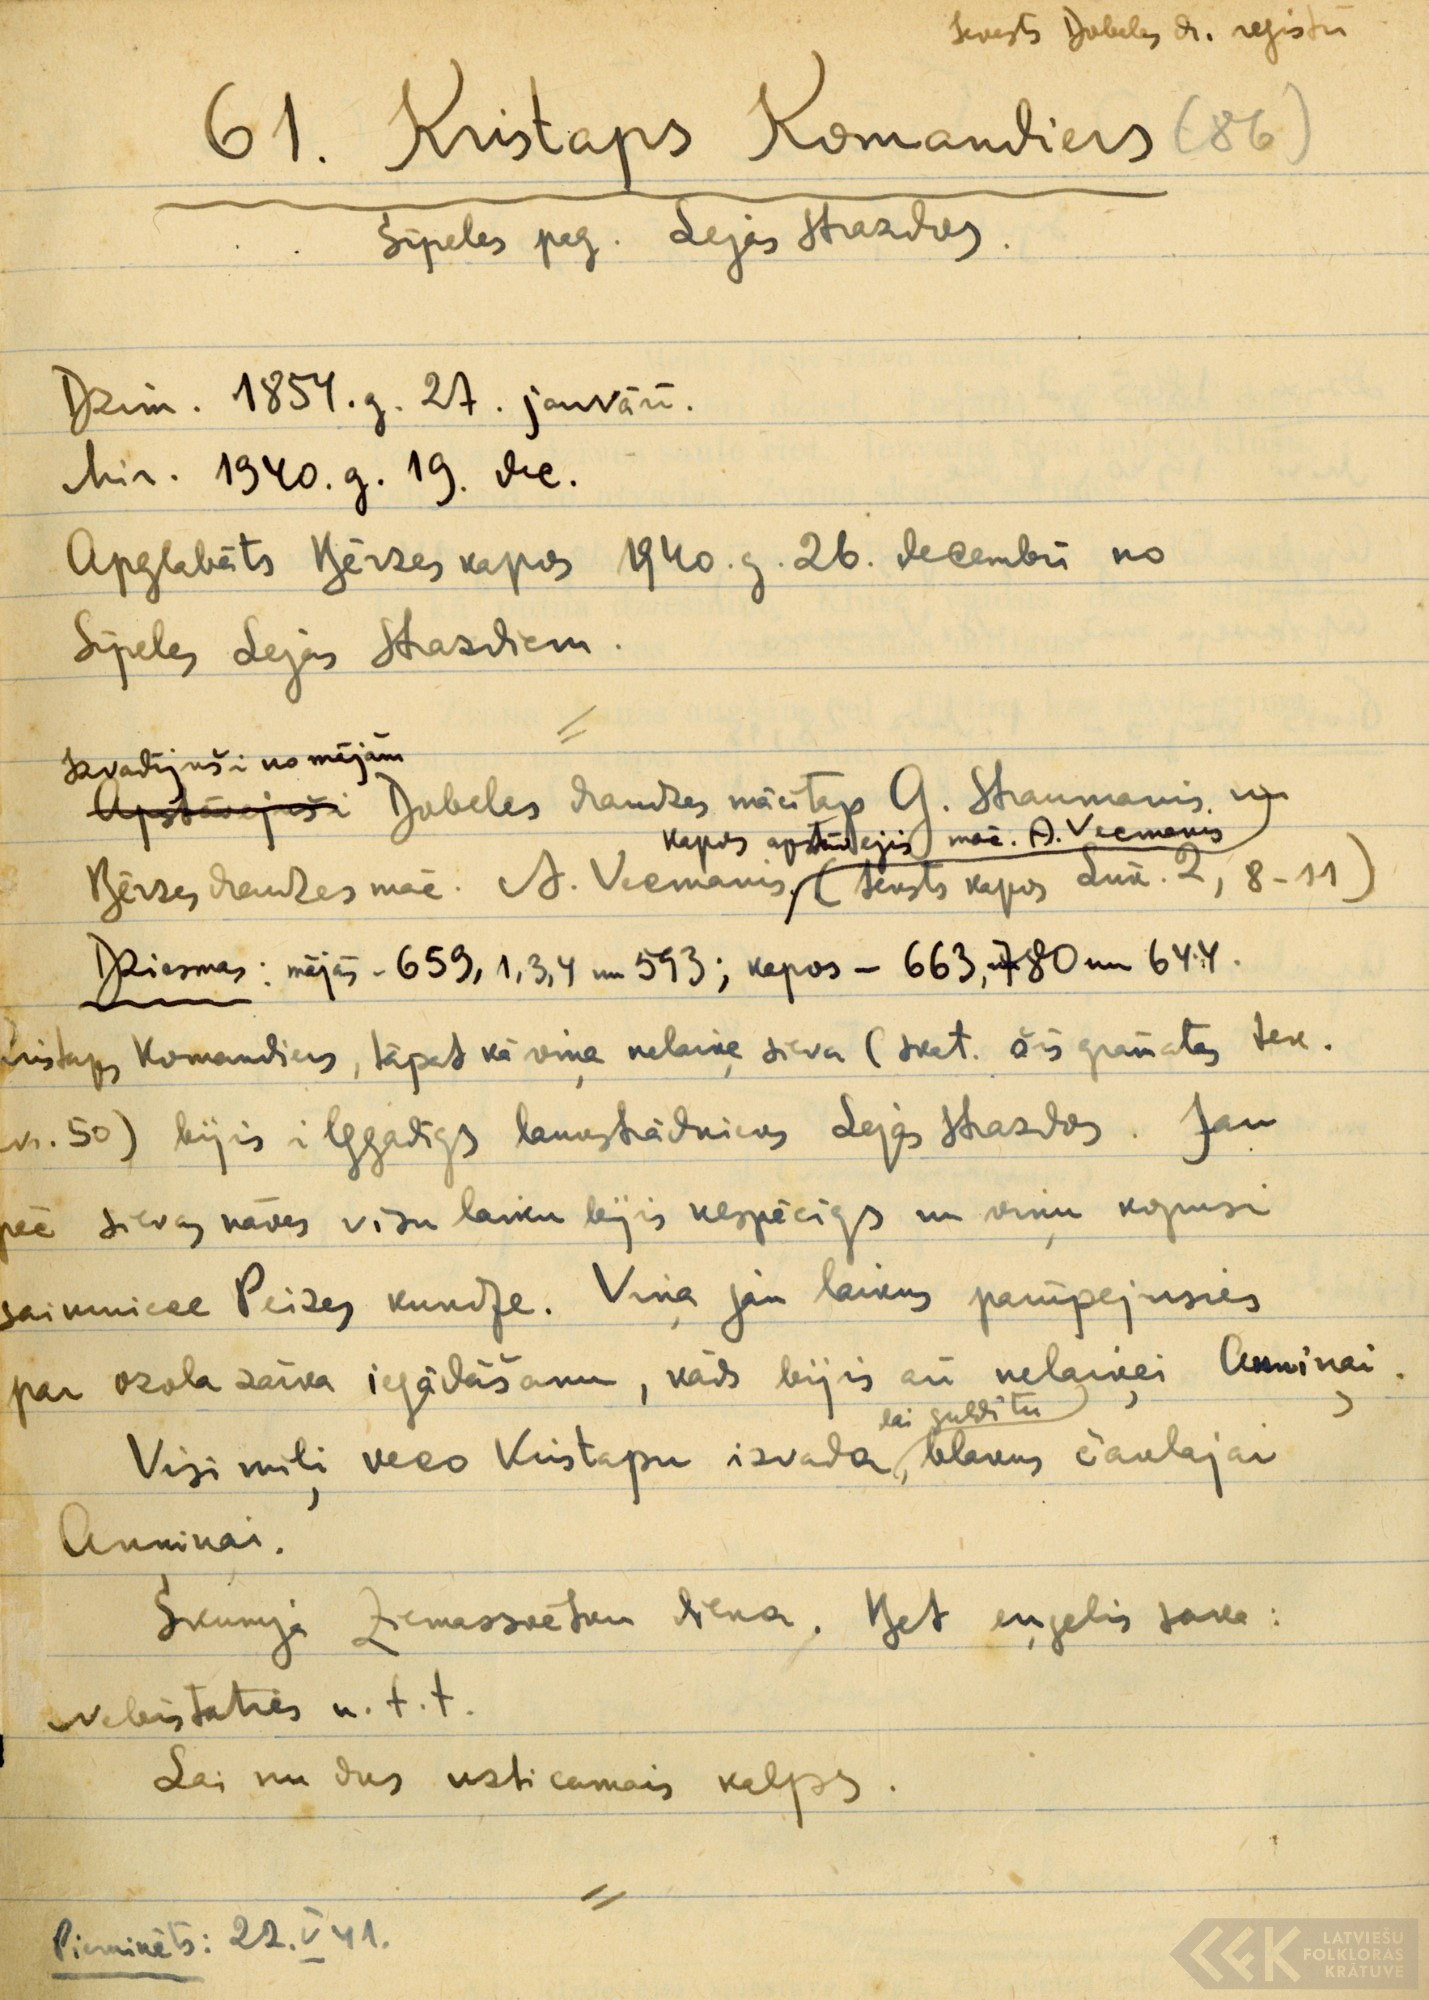 Ievests Dobeles dr. reģistrī
61. Kristaps Komandiers (86)
Sīpeles pag. Lejās Strazdos.
Dzim. 1854. g. 27. janvārī.
Mir. 1940. g. 19. dec.
Apglabāts Bērzes kapos 1940. g. 26. decembrī no
Sīpeles Lejās Strazdiem.
Izvadījuši no mājām
Apstāvejuši Dobeles draudzes mācītājs G. Straumanis un
kapos apstāvējis māc. A. Vecmanis
Bērzes draudzes māc. A. Vecmanis. (teksts kapos Lūk. 2, 8-11)
Dziesmas: mājās - 659, 1, 3, 4 un 593; kapos - 663, 780 un 644.
Kristaps Komandiers, tāpat kā viņa nelaiķe sieva (skat. šīs grāmatas tek.
nr. 50) bijis ilggadīgs laukstrādnieks Lejās Strazdos. Jau
pēc sievas nāves visu laiku bijis nespēcīgs un viņu kopusi
saimniece Peizes kundze. Viņa jau laikus parūpejusies
par ozola zārka iegādāšanu, kāds bijis arī nelaiķei Anniņai.
lai guldītu
Visi mīļi veco Kristapu izvada, blakus čaklajai
Anniņai.
Skumjā Ziemassvētku diena. Bet eņģelis saka:
Nebīstaties u. t. t.
Lai nu dus uzticamais kalps.
Pieminēts: 22. V 41.
LATVIEŠU
FOLKLORAS
KRĀTUVE